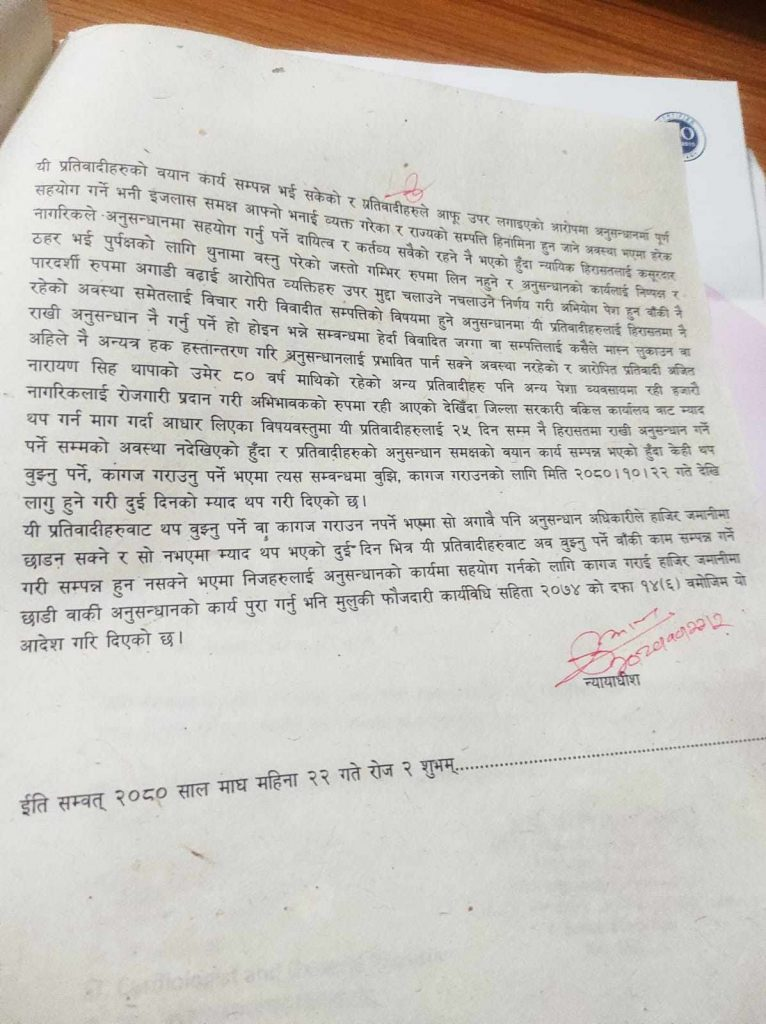 यी प्रतिवादीहरुको वयान कार्य सम्पन्न भई सकेको र प्रतिवादीहरुले आफू उपर लगाइएको आरोपमा अनुसन्धानमा पूर्ण
सहयोग गर्ने भनी इजलास समक्ष आफ्नो भनाई व्यक्त गरेका र राज्यको सम्पत्ति हिनामिना हुन जाने अवस्था भएमा हरेक
नागरिकले अनुसन्धानमा सहयोग गर्नु पर्ने दायित्व र कर्तव्य सवैको रहने नै भएको हुँदा न्यायिक हिरासतलाई कसूरदार
ठहर भई पुर्पक्षको लागि थुनामा वस्नु परेको जस्तो गम्भिर रुपमा लिन नहुने र अनुसन्धानको कार्यलाई निष्पक्ष र
पारदर्शी रुपमा अगाडी वढाई आरोपित व्यक्तिहरु उपर मुद्दा चलाउने नचलाउने निर्णय गरी अभियोग पेश हुन वाँकी नै
रहेको अवस्था समेतलाई विचार गरी विवादीत सम्पत्तिको विषयमा हुने अनुसन्धानमा यी प्रतिवादीहरुलाई हिरासतमा नै
राखी अनुसन्धान नै गर्नु पर्ने हो होइन भन्ने सम्वन्धमा हेर्दा विवादित जग्गा वा सम्पत्तिलाई कसैले मास्न लुकाउन वा
अहिले नै अन्यत्र हक हस्तान्तरण गरि अनुसन्धानलाई प्रभावित पार्न सक्ने अवस्था नरहेको र आरोपित प्रतिवादी अजित
नारायण सिह थापाको उमेर ८० वर्ष माथिको रहेको अन्य प्रतिवादीहरु पनि अन्य पेशा व्यवसायमा रही हजारौ
नागरिकलाई रोजगारी प्रदान गरी अभिभावकको रुपमा रही आएको देखिँदा जिल्ला सरकारी वकिल कार्यालय वाट म्याद
थप गर्न माग गर्दा आधार लिएका विषयवस्तुमा यी प्रतिवादीहरुलाई २५ दिन सम्म नै हिरासतमा राखी अनुसन्धान गर्ने
पर्ने सम्मको अवस्था नदेखिएको हुँदा र प्रतिवादीहरुको अनुसन्धान समक्षको वयान कार्य सम्पन्न भएको हुँदा केही थप
वुझ्नु पर्ने, कागज गराउनु पर्ने भएमा त्यस सम्वन्धमा बुझि, कागज गराउनको लागि मिति २०८०।१०।२२ गते देखि
लागु हुने गरी दुई दिनको म्याद थप गरी दिएको छ।
यी प्रतिवादीहरुवाट थप वुझ्नु पर्ने वा कागज गराउन नपर्ने भएमा सो अगावै पनि अनुसन्धान अधिकारीले हाजिर जमानीमा
छाडन सक्ने र सो नभएमा म्याद थप भएको दुई दिन भित्र यी प्रतिवादीहरुवाट अव वुझ्नु पर्ने वाँकी काम सम्पन्न गर्ने
गरी सम्पन्न हुन नसक्ने भएमा निजहरुलाई अनुसन्धानको कार्यमा सहयोग गर्नको लागि कागज गराई हाजिर जमानीमा
छाडी वाकी अनुसन्धानको कार्य पुरा गर्नु भनि मुलुकी फौजदारी कार्यविधि सहिता २०७४ को दफा १४(६) वमोजिम यो
आदेश गरि दिएको छ।
न्यायाधीश
ईति सम्वत् २०८० साल माघ महिना २२ गते रोज २ शुभम्..........................................